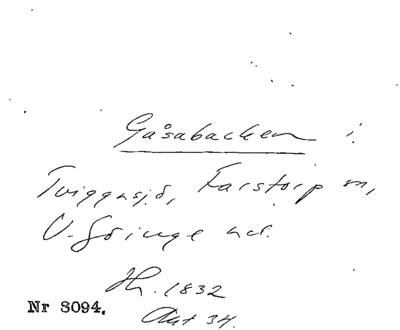 Gåsabacken i
Tviggasjö, Farstorp sn,
V. Göinge hd.
Hn. 1832
Akt 34.
Nr 8094.